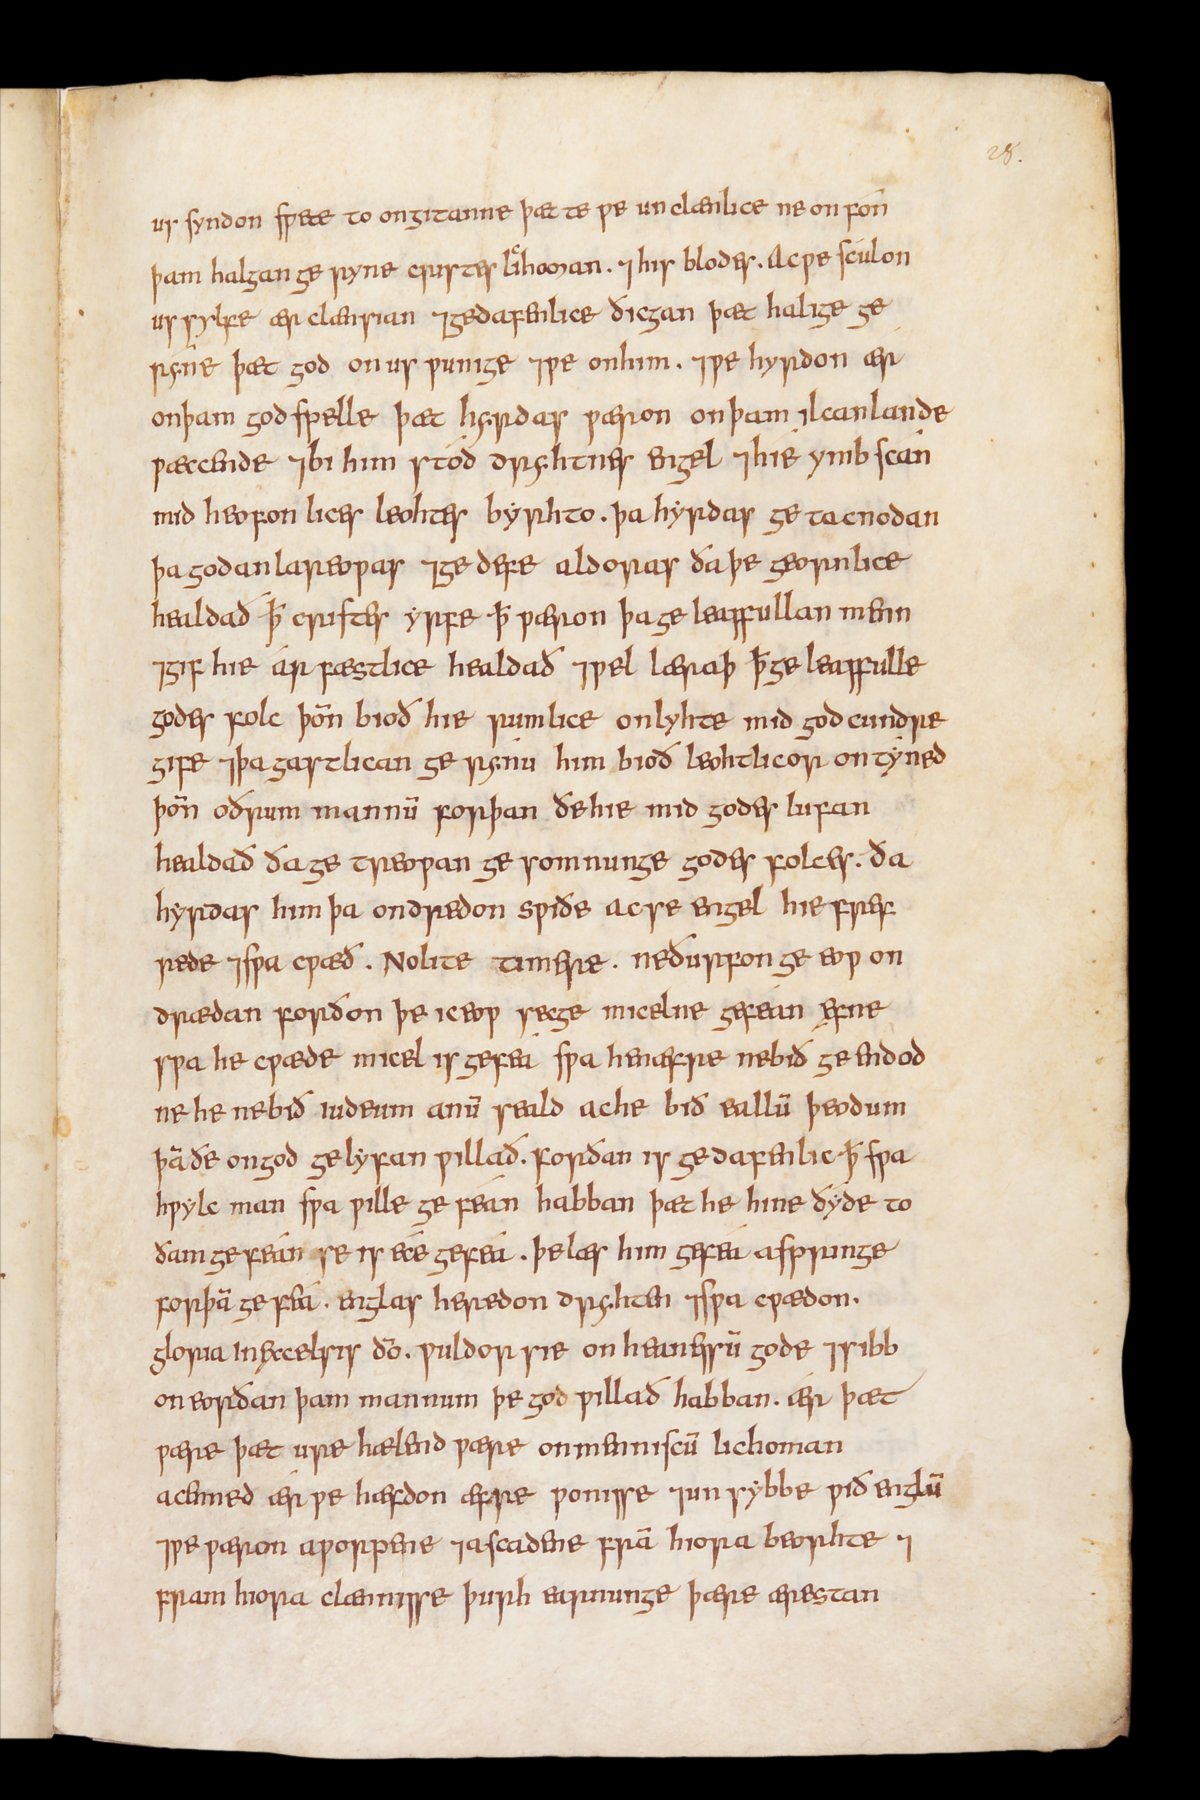 28.
us syndon sƿete to ongitanne þæt te ƿe unclænlice ne onfón
þam halgan ge ryne cristes lichoman. ⁊ his blodes. Ac ƿe sculon
us sylfe ær clænsian ⁊ gedafenlice ðicgan þæt halige ge
ryne þæt god on us ƿunige ⁊ ƿe on him. ⁊ ƿe hyrdon ær
on þam godspelle þæt hyrdas ƿæron on þam ilcan lande
ƿæccende ⁊ bi him stód dryhtnes engel ⁊ hie ymb scán
mid heofon lices leohtes byrhto. þa hyrdas ge tacnodan
þa godan lareoƿas ⁊ ge defe aldoras ða þe geornlice
healdað ꝥ cristes yrfe ꝥ ƿæron þa ge leaffullan menn
⁊ gif hie ár fæstlice healdað ⁊ ƿel læraþ ꝥ ge leaffulle
godes folc þoñ bioð hie rumlice onlyhte mid god cundre
gife ⁊ þa gastlican ge rynu him bioð leohtlicor ontyned
þoñ oðrum mannū forþan ðe hie mid godes lufan
healdað ða ge treoƿan ge somnunge godes folces. ða
hyrdas him þa ondredon sƿiðe ac se engel hie fref
rede ⁊ sƿa cƿæð. Nolite timere. ne ðurfon ge eoƿ on
drædan forðon þe ic eoƿ secge micelne gefean efne
sƿa he cƿæde micel is gefea sƿa he næfre ne bið ge endod
ne he ne bið iudeum anū seald ac he bið eallū þeodum
þā ðe on god gelyfan ƿillað. forðan is gedafenlic ꝥ sƿa
hƿylc man sƿa ƿille ge feán habban þæt he hine ðyde to
ðam gefeán se is éce gefea. þe læs him gefea asprunge
forþā ge fea. englas heredon dryhten ⁊ sƿa cƿædon.
gloria in excelsis dō. ƿuldor sie on heanessū gode ⁊ sibb
on eorðan þam mannum þe god ƿillað habban. ær þæt
ƿære þæt ure hælend ƿære on menniscū lichoman
acenned ǽr ƿe hæfdon æfre ƿonisse ⁊ un sybbe ƿið englū
⁊ ƿe ƿæron aƿorpene ⁊ ascadene frā hiora beorhte ⁊
fram hiora clænnisse þurh earnunge þære ærestan